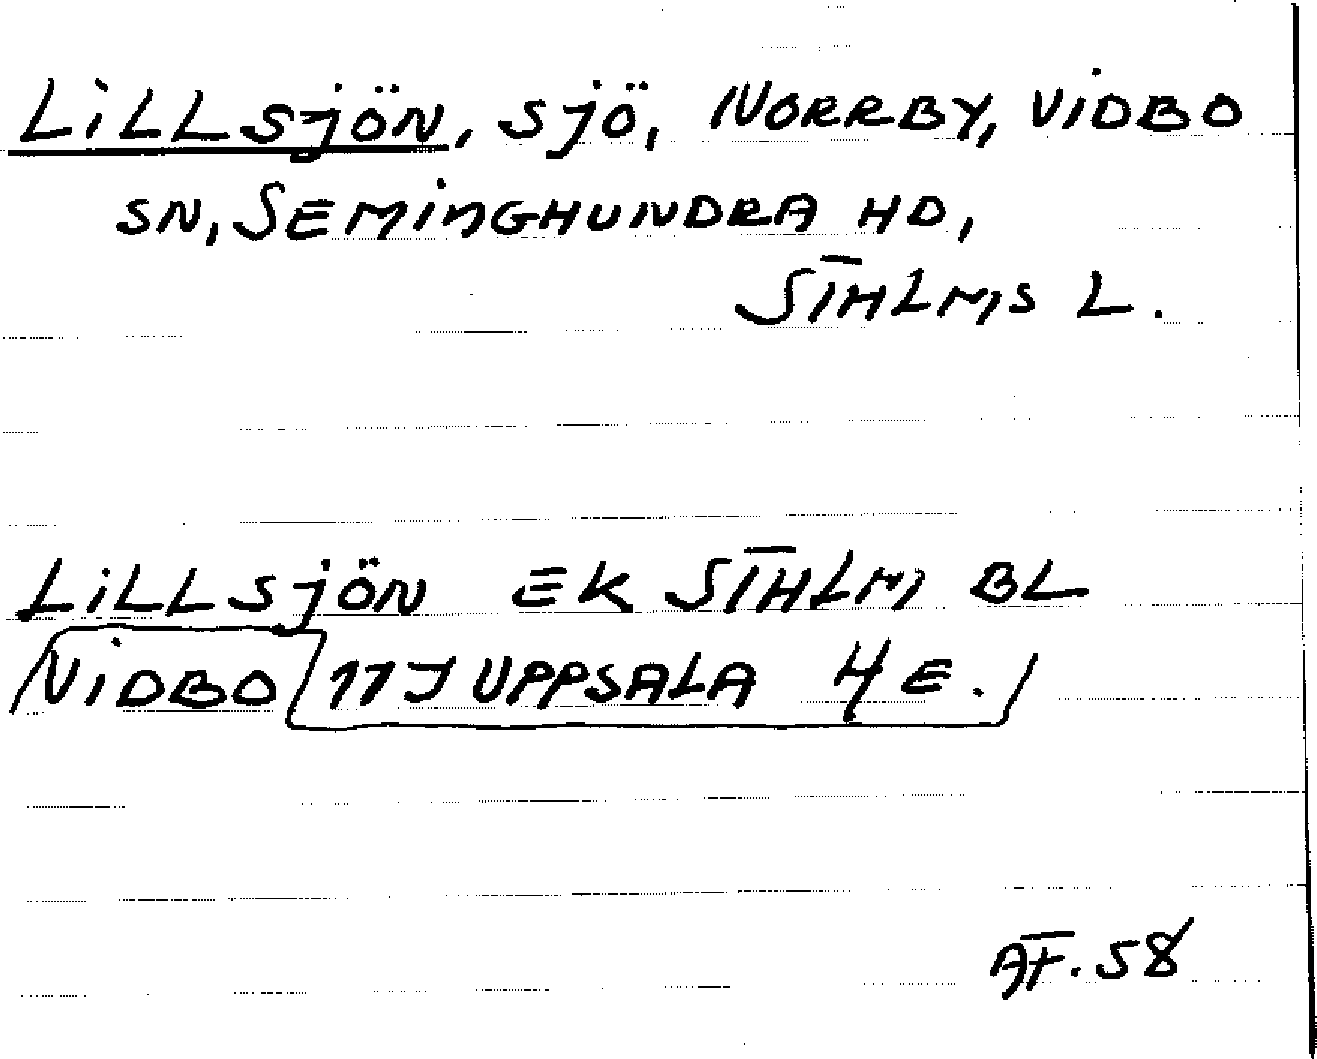 LILLSJÖN, SJÖ, NORRBY, VIDBO
SN, SEMINGHUNDRA HD,
STHLMS L.
LILLSJÖN EK STHLM BL
VIDBO 11J UPPSALA 4 E.
AF. 58